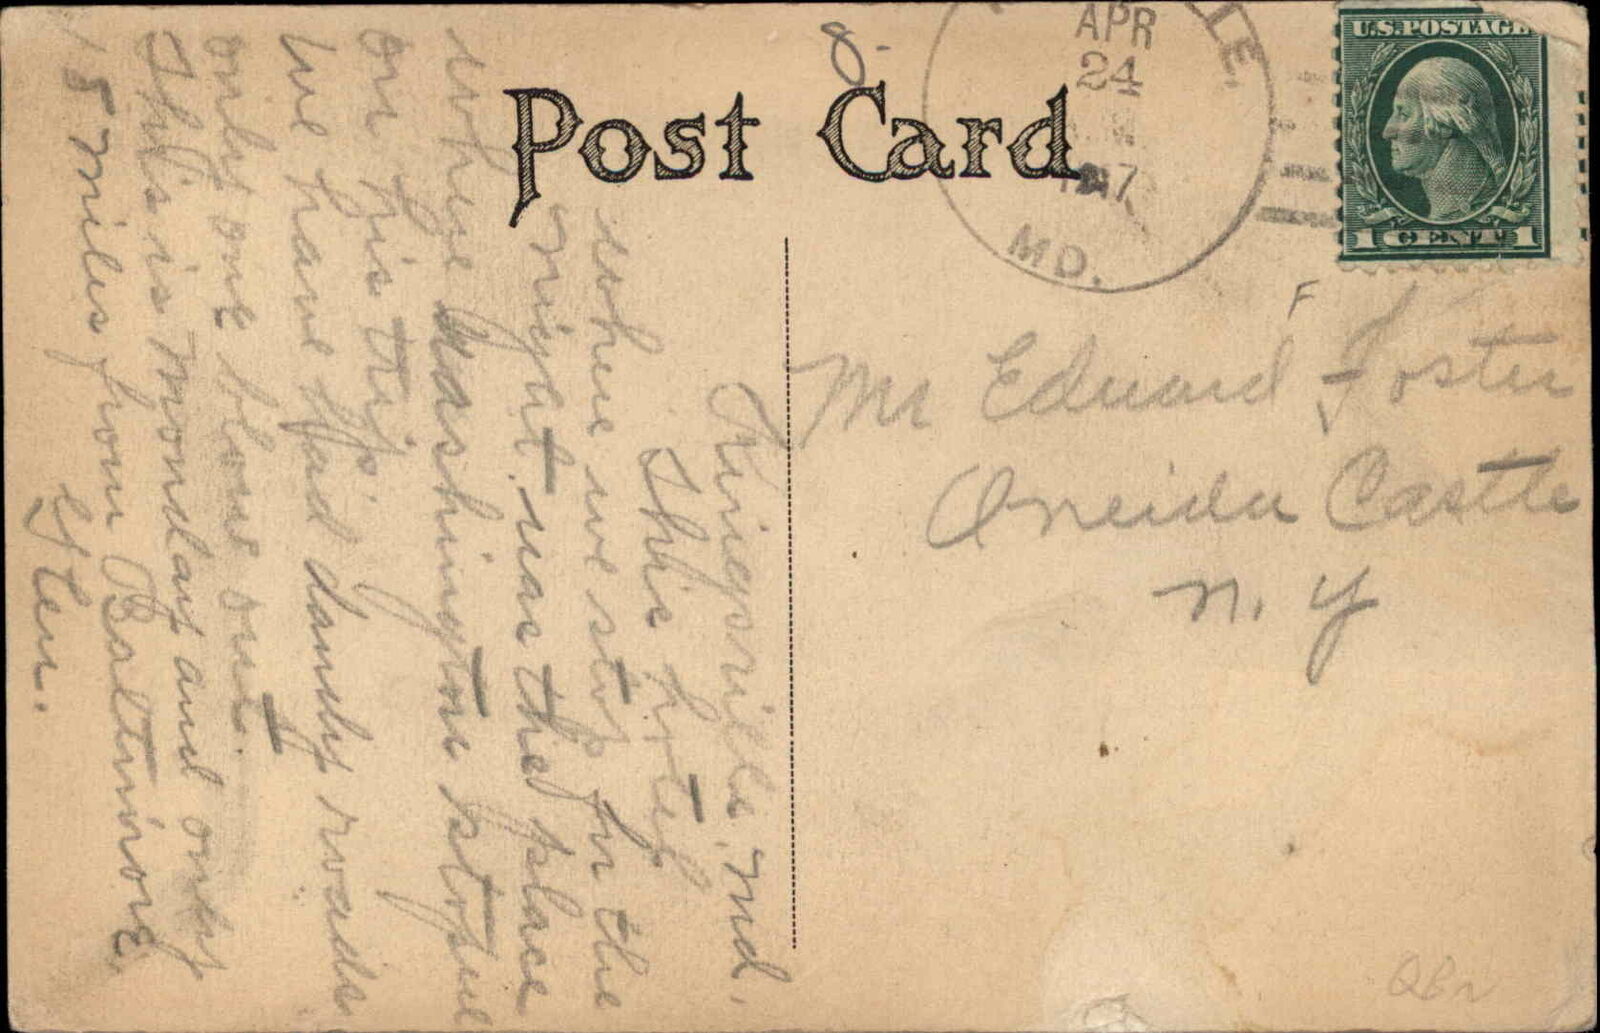 8-
Post Card
LE.
APR
24
1917
MD.
U.S. POSTAGE
1 CENT 1
Kingsville, Md.
This hotel
where we stop for the
night was the place
where Washington stoped
on his trip.
We have had dandy roads
only one blowe out.
This is Monday and only
15 miles from Baltimore.
F
Mr Edward Foster
Oneida Castle
N. Y